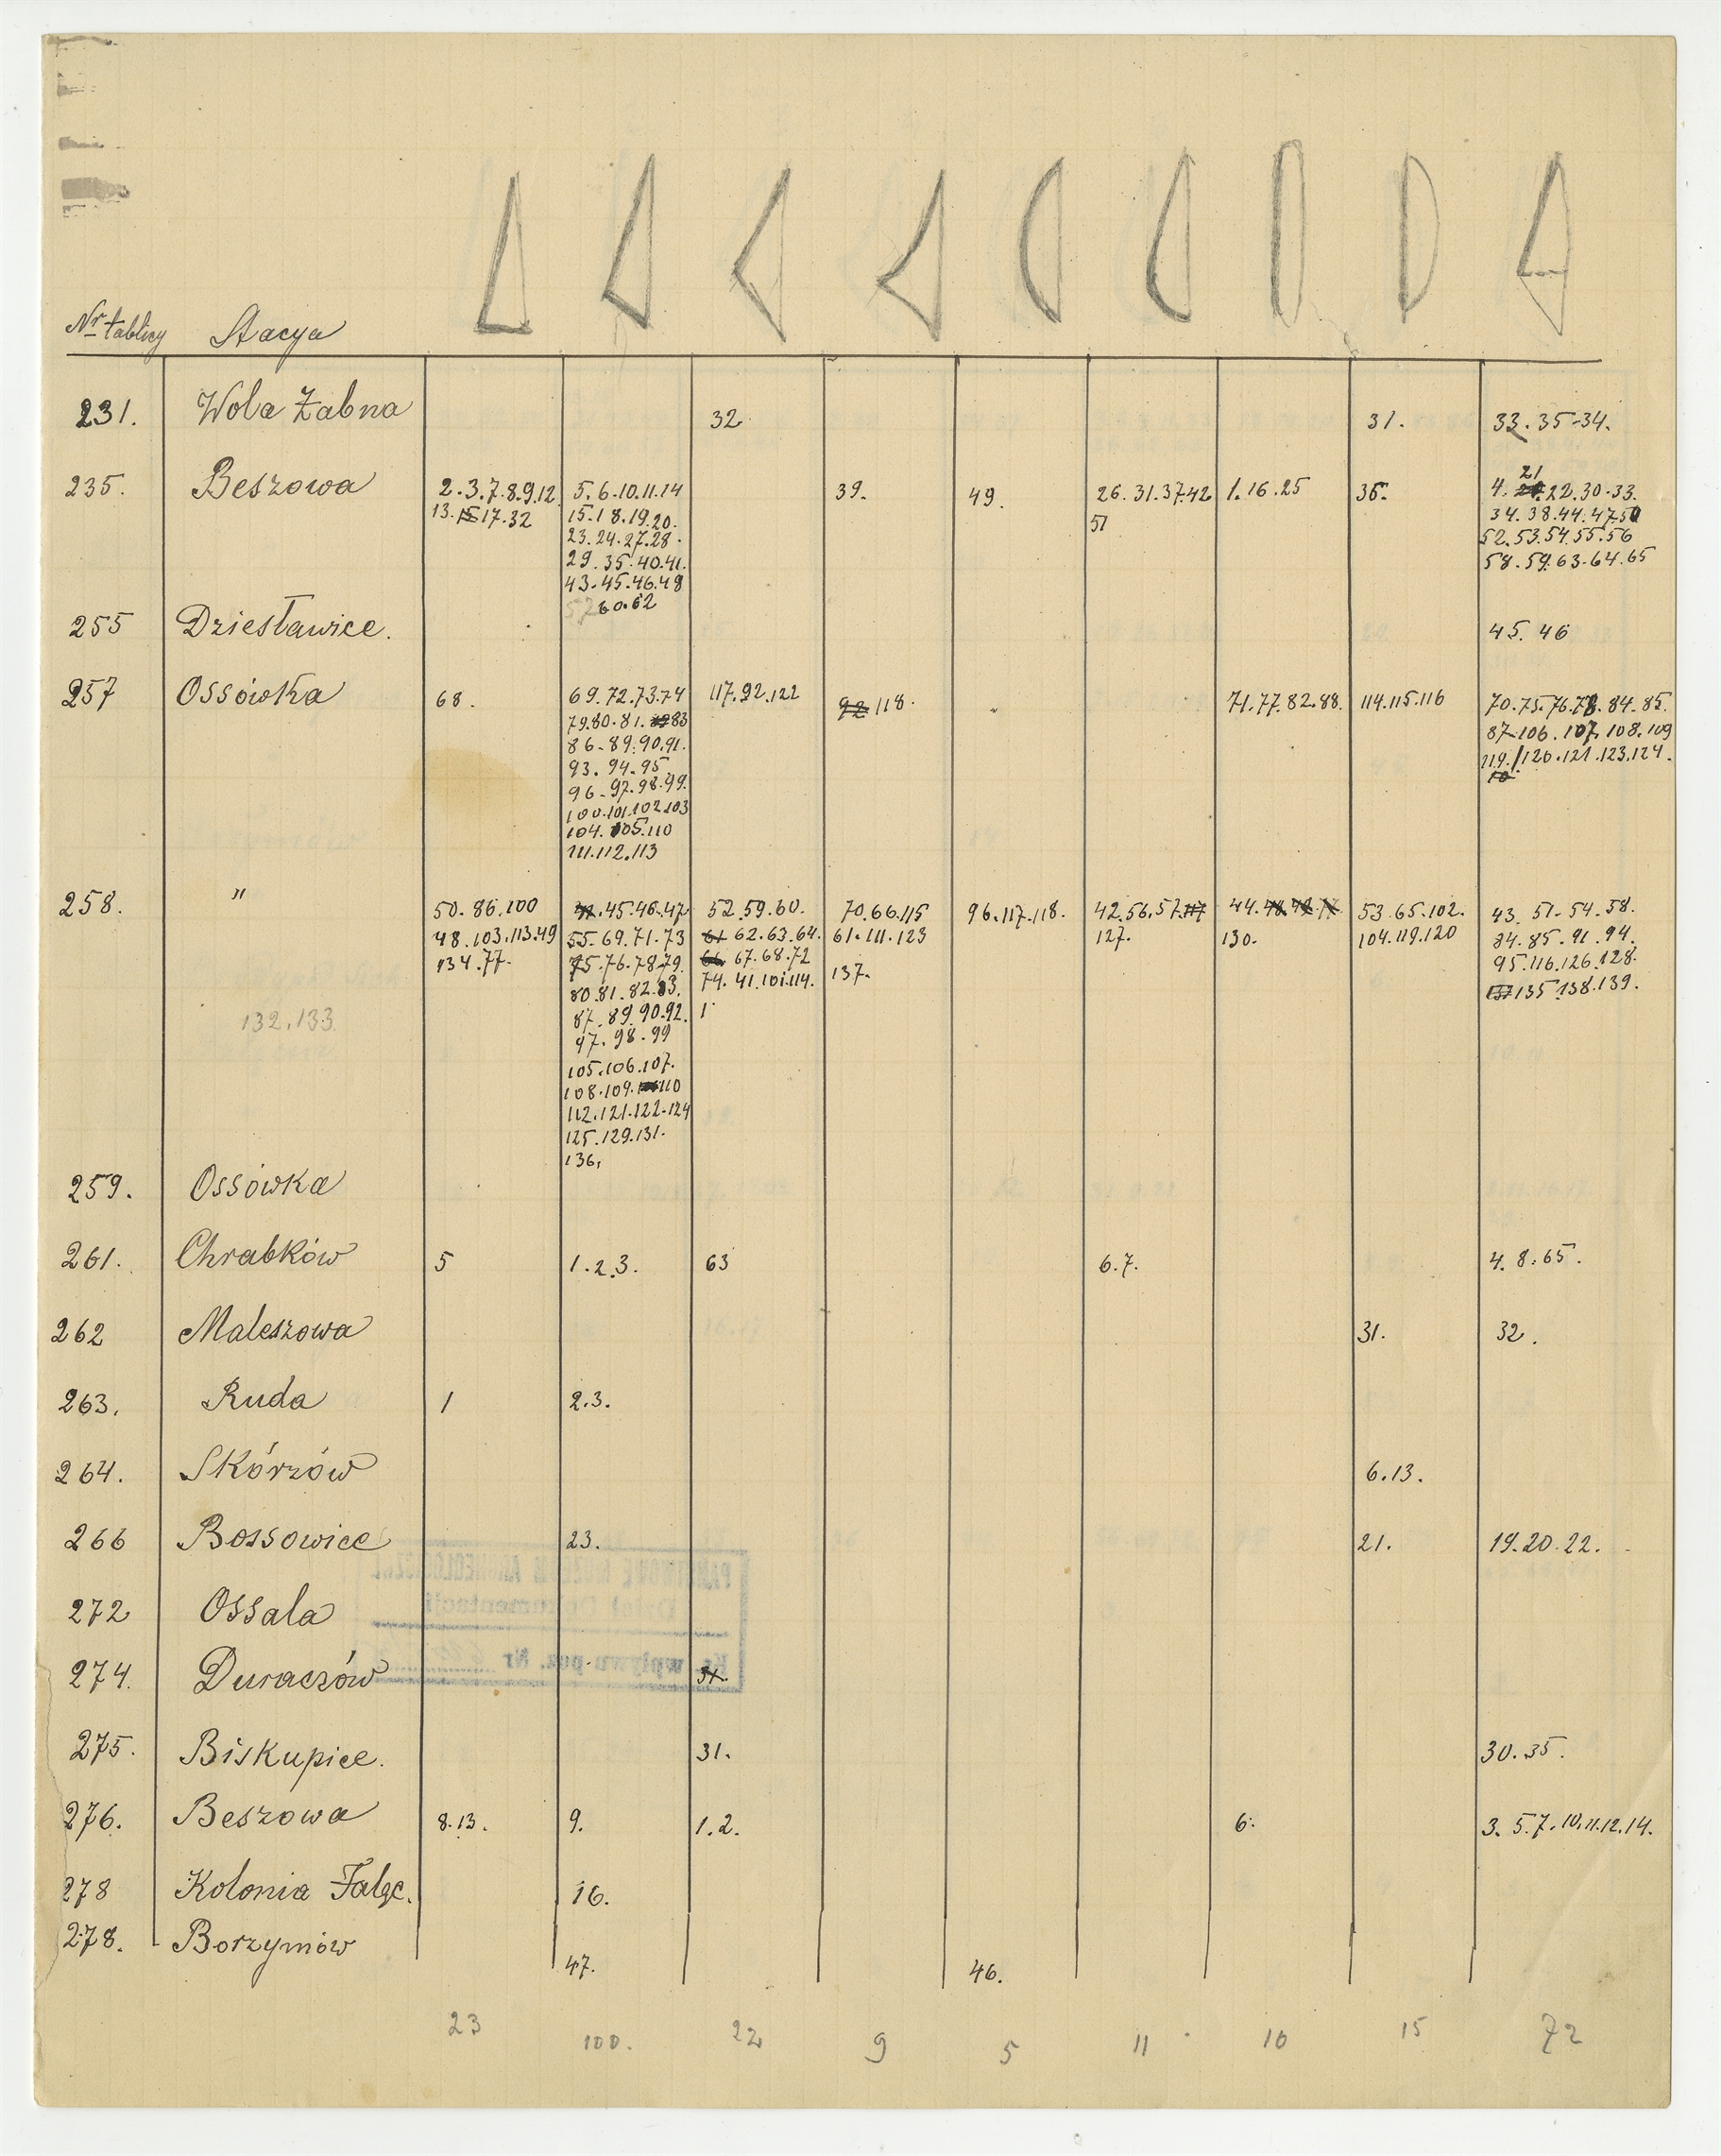 Nr tablicy Stacya
231. Wola Żabna 32 31. 33. 35-34.
235. Beszowa 2.3.7.8.9.12 5.6.10.11.14 39. 49. 26.31.37.42 1.16.25 36. 4. 21 22.30.33.
13. 15 17.32 15.18.19.20. 51 34.38.44.47.50
23.24.27.28. 52.53.54.55.56
29.35.40.41. 58.59.63.64.65
43.45.46.48
57 60.62
255 Dziesławice. 45. 46
257 Ossówka 68. 69.72.73.74 117.92.122 92 118. 71.77.82.88. 114.115.116 70.75.76.78.84.85.
79.80.81. 83 87-106.107.108.109
86-89.90.91. 119./120.121.123.124.
93.94.95 10
96-97.98.99.
100.101.102.103
104.105.110
111.112.113
258. " 50.86.100 45.46.47 52.59.60. 70.66.115 96.117.118. 42.56.57. 117 44. 48. 49. 53.65.102. 43. 51-54.58.
48.103.113.49 55.69.71.73 61 62.63.64. 61.111.123 127. 130. 104.119.120 84.85.91.94.
134.77. 75.76.78.79. 66 67.68.72 137. 95.116.126.128.
80.81.82.83. 74.41.101.114. 137 135.138.139.
132.133. 87.89.90.92. 1
97.98.99
105.106.107.
108.109. 110
112.121.122.124
125.129.131.
136.
259. Ossówka
261. Chrabków 5 1.2.3. 63 6.7. 4.8.65.
262 Maleszowa 31. 32.
263. Ruda 1 2.3.
264. Skórzów 6.13.
266 Bossowice 23. 21. 19.20.22.
272 Ossala
274. Duraczów 31.
275. Biskupice. 31. 30.35.
276. Beszowa 8.13. 9. 1.2. 6. 3.5.7.10.11.12.14.
278 Kolonia Falęc. 16.
278. Borzymów 47. 46.
23 100. 22 9 5 11 10 15 72